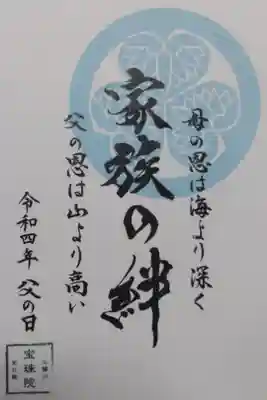 母の恩は海より深く
家族の絆
父の恩は山より高い
令和四年 父の日
宝珠院